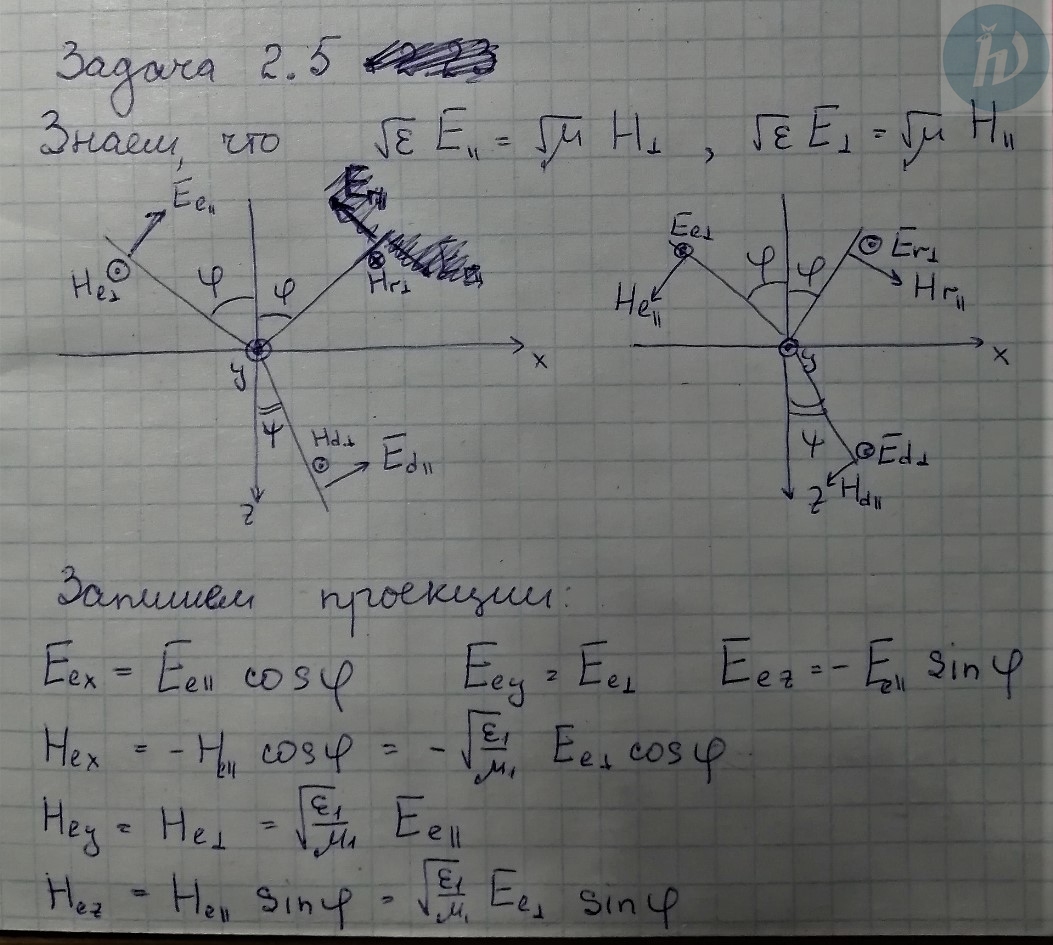 Задача 2.5
Знаем, что √ε E∥ = √μ H⊥ , √ε E⊥ = √μ H∥
Ee∥
He⊥
φ
φ
Hr⊥
x
y
ψ
Hd⊥
Ed∥
z
Ee⊥
He∥
φ
φ
Er⊥
Hr∥
x
y
ψ
Ed⊥
z
Hd∥
Запишем проекции:
Eex = Ee∥ cosφ Eey = Ee⊥ Eez = - Ee∥ sinφ
Hex = - He∥ cosφ = - √ε1/μ1 Ee⊥ cosφ
Hey = He⊥ = √ε1/μ1 Ee∥
Hez = He∥ sinφ = √ε1/μ1 Ee⊥ sinφ